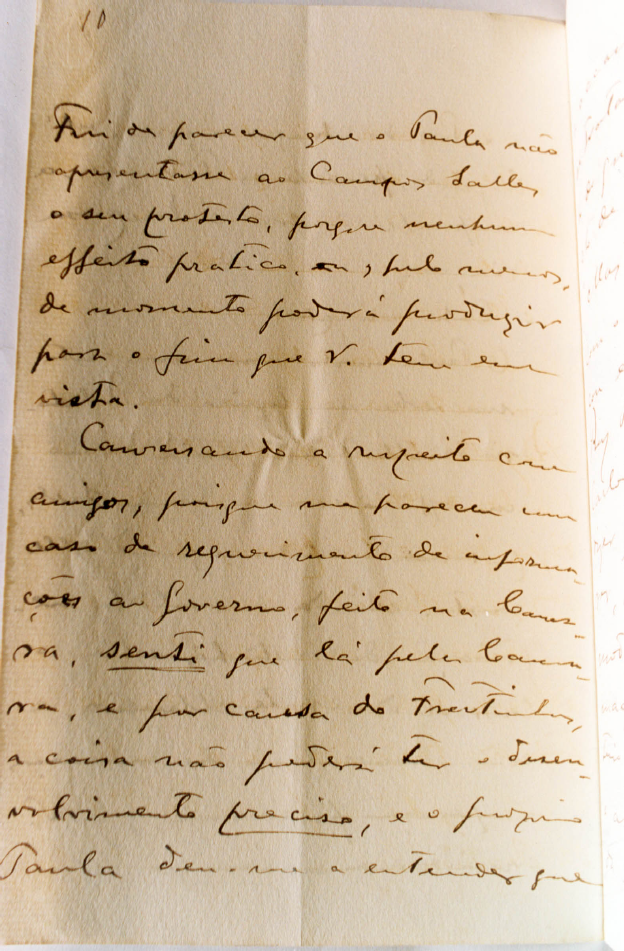 10
Fui de parecer que o Paula não
apresentasse ao Campos Salles
o seu protesto, porque nenhum
effeito pratico, ou, pelo menos,
de momento poderá produzir
para o fim que V. tem em
vista.
Conversando a respeito com
amigos, porque me pareceu um
caso de requerimento de informa-
ções ao Governo, feito na Cama-
ra, senti que lá pela Cama-
ra, e por causa do
a coisa não poderá ter o desen-
volvimento preciso, e o proprio
Paula deu-me a entender que